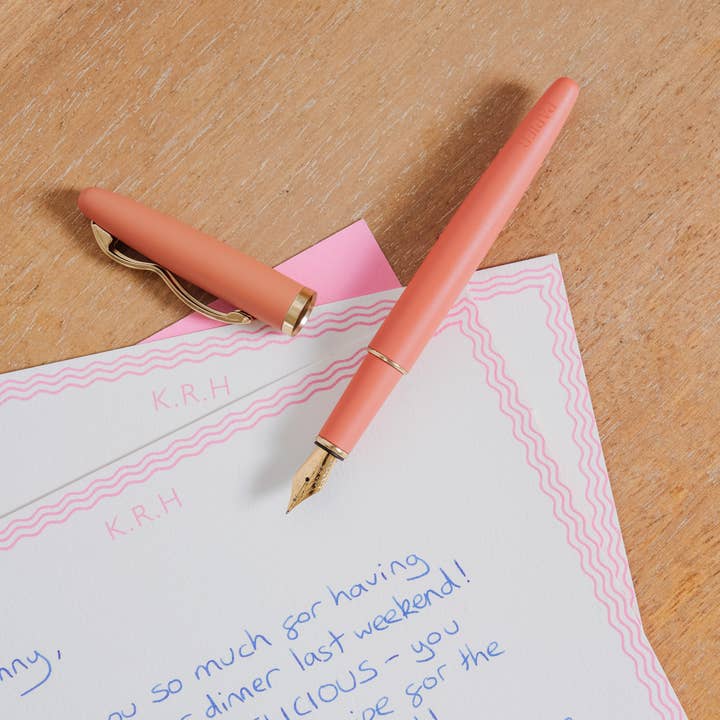 PAPIER
K.R.H
K.R.H
nny,
ou so much for having
r dinner last weekend!
LICIOUS - you
ipe for the